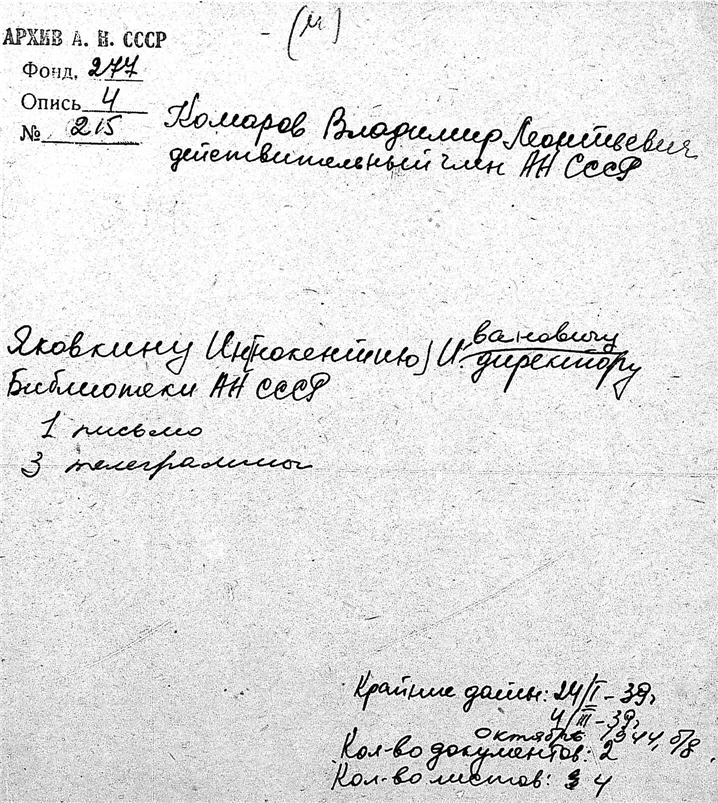 (м)
АРХИВ А. Н. СССР
Фонд. 277
Опись 4
№ 215
Комаров Владимир Леонтьевич
действительный член АН СССР
Яковкину Ин[нокентию] Ивановичу
директору
Библиотеки АН СССР
1 письмо
3 телеграммы
Крайние даты: 24/I-39г
4/III-39г
октябрь 1944, б/д.
Кол-во документов: 2
Кол-во листов: 4